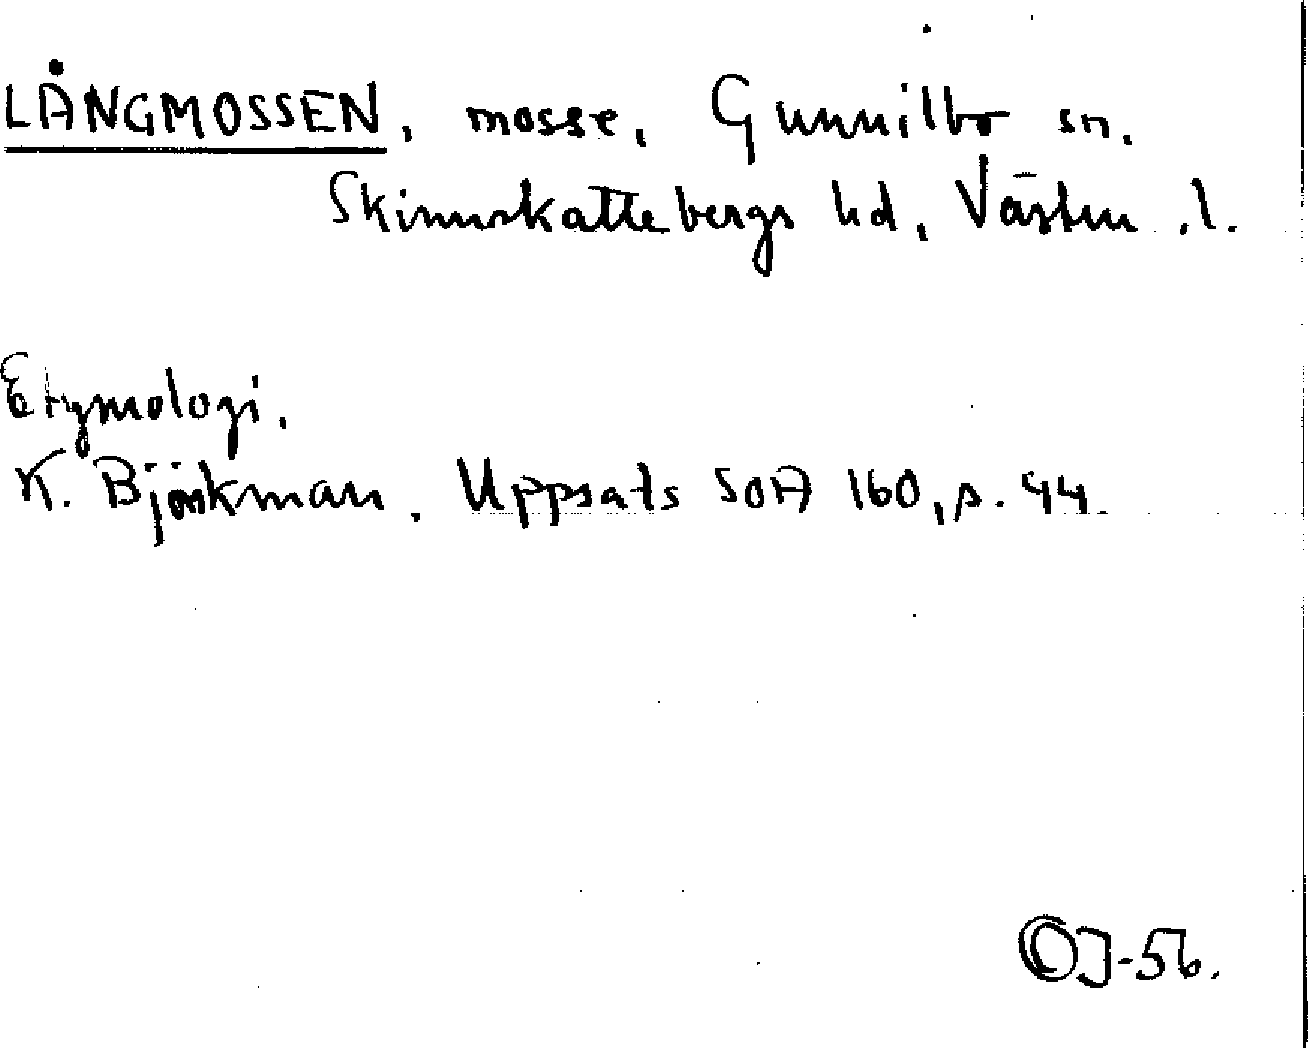 LÅNGMOSSEN, mosse, Gunnilbo sn.
Skinnskattebergs hd, Västm. l.
Etymologi.
K. Björkman. Uppsats SOA 160, s. 44.
OJ-56.